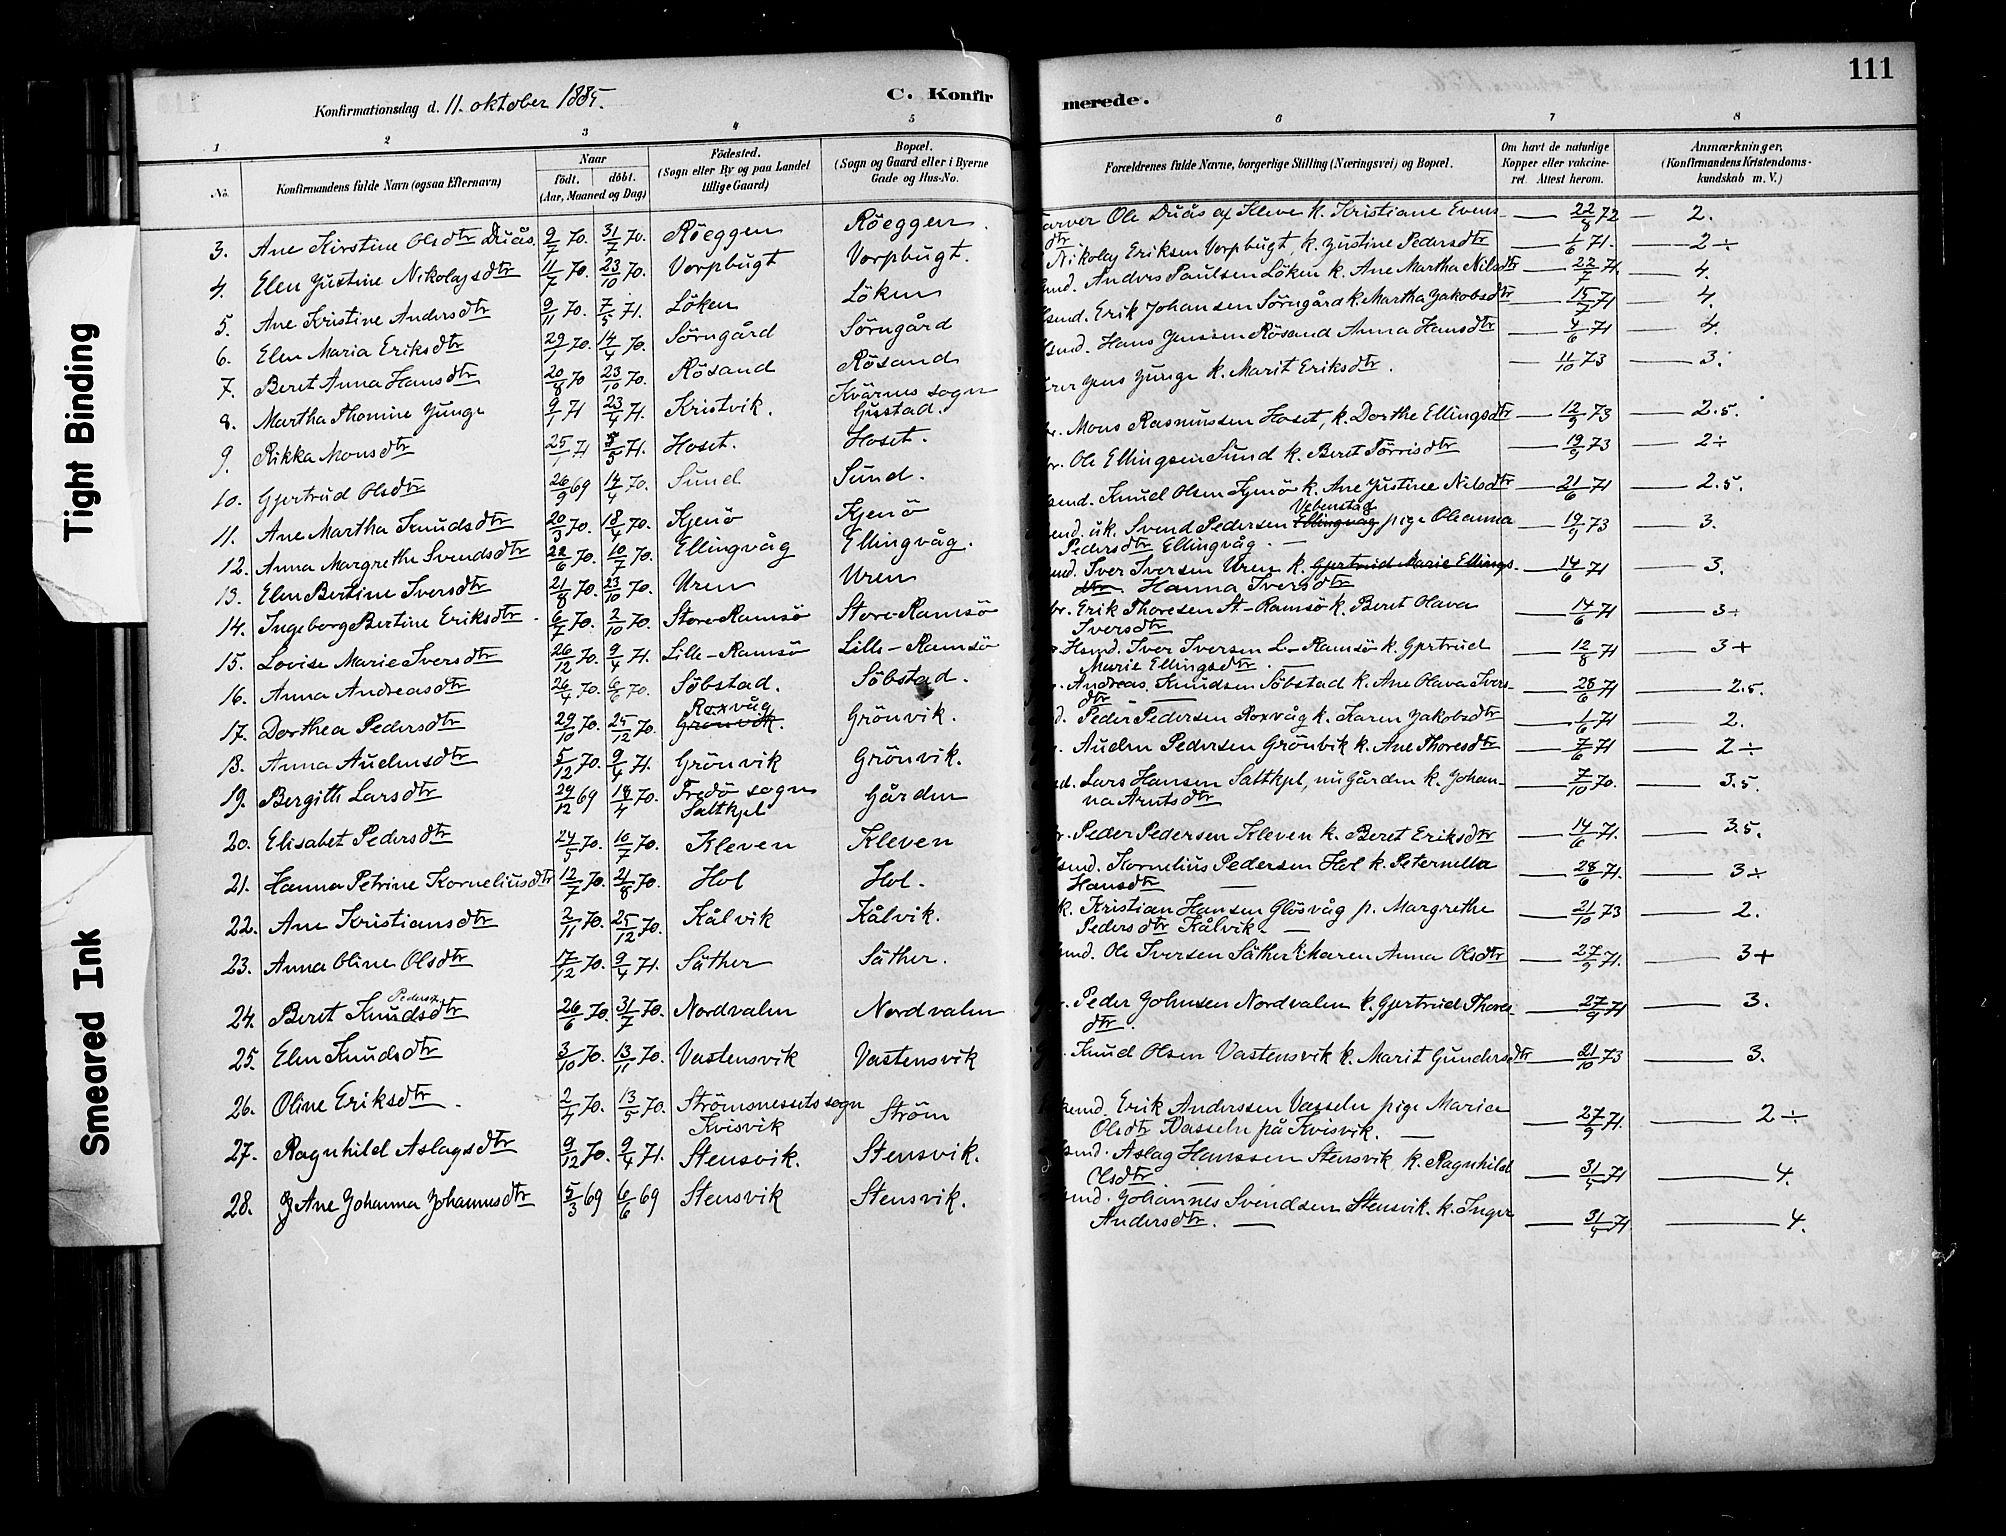 111
Konfirmationsdag d. 11. oktober 1885.
C. Konfir merede.
1 2 3 4 5 6 7 8
No.
Konfirmandens fulde Navn (ogsaa Efternavn)
Naar
født. døbt.
(Aar, Maaned og Dag)
Födested.
(Sogn eller By og paa Landet
tillige Gaard)
Bopæl.
(Sogn og Gaard eller i Byerne
Gade og Hus-No.
Forældrenes fulde Navne, borgerlige Stilling (Næringsvei) og Bopæl.
Om havt de naturlige
Kopper eller vakcine-
ret. Attest herom.
Anmærkninger,
(Konfirmandens Kristendoms-
kundskab m. V.)
3. Ane Kirstine Olsdtr Duås. 9/7 70. 31/7 70. Röeggen Röeggen. Garver Ole Duås af Kleve k. Kristiane Evens- — 22/8 72 — 2.
dtr
4. Elen Justine Nikolaysdtr 11/7 70. 23/10 70. Vorpbugt Vorpbugt. Nikolay Eriksen Vorpbugt, k. Justine Pedersdtr — 1/6 71. — 2÷
5. Ane Kristine Andersdtr 9/11 70. 7/5 71. Löken Löken Anders Paulsen Löken k. Ane Martha Nilsdtr — 22/7 71. — 4.
6. Elen Maria Eriksdtr 29/1 70. 14/4 70. Sörngård Sörngård Erik Johansen Sörngård k. Martha Jakobsdtr — 15/7 71 — 4.
7. Beret Anna Hansdtr 20/8 70 23/10 70. Rösand Rösand Hans Jenssen Rösand Anna Hansdtr — 4/6 71 — 4.
8. Martha Thomine Junge 9/1 71 23/4 71. Kristvik. Kvärnes sogn
Gustad. Jens Junge k. Marit Eriksdtr. — 11/10 73 — 3.
9. Rikka Monsdtr 25/1 71 5/5 71. Hoset. Hoset. Mons Rasmussen Hoset, k. Dorthe Ellingsdtr — 12/9 73 — 2.5.
10. Gjertrud Olsdtr 26/9 69 14/4 70. Sund Sund. Ole Ellingsen Sund k. Beret Törrisdtr — 19/9 73 — 2÷
11. Ane Martha Knudsdtr 20/3 70. 18/4 70. Kjenö Kjenö Knud Olsen Kjenö k. Ane Justine Nilsdtr — 21/6 71 — 2.5.
12. Anna Margrethe Svendsdtr 22/6 70. 10/7 70. Ellingvåg Ellingvåg. uk. Svend Pedersen Ellingvåg Vebenstad pige Oleanna — 19/9 73 — 3.
Pedersdtr Ellingvåg. —
13. Elen Bertine Iversdtr 21/8 70. 23/10 70. Uren Uren Iver Iversen Uren k. Gjertrud Marie Ellings- — 14/6 71 — 3.
dtr Hanna Iversdtr
14. Ingeborg Bertine Eriksdtr. 6/7 70. 2/10 70. Store-Ramsö Store-Ramsö Erik Thoresen St-Ramsö k. Beret Olava — 14/6 71 — 3÷
Iversdtr
15. Lovise Marie Iversdtr 26/12 70. 9/4 71. Lille-Ramsö Lille-Ramsö Hsmd. Iver Iversen L-Ramsö k. Gjertrud — 12/8 71 — 3+
Marie Ellingsdtr. —
16. Anna Andreasdtr 26/4 70. 6/6 70. Söbstad. Söbstad. Andreas Knudsen Söbstad k. Ane Olava Ivers- — 28/6 71 — 2.5.
dtr —
17. Dorthea Pedersdtr 29/10 70. 25/12 70. Grönvik. Roxvåg Grönvik. Peder Pedersen Roxvåg k. Karen Jakobsdtr — 1/6 71 — 2.
18. Anna Audensdtr 5/12 70. 9/4 71. Grönvik Grönvik. Auden Pedersen Grönvik k. Ane Thoresdtr — 7/6 71 — 2÷
19. Bergith Larsdtr 24/12 69 18/4 70. Fredö sogn
Saltkjel Gården Lars Hansen Saltkjel, nu Gården k. Johan- — 7/10 70. — 3.5.
na Arntsdtr
20. Elisabet Pedersdtr 24/5 70. 10/7 70. Kleven Kleven Peder Pedersen Kleven k. Beret Eriksdtr — 14/6 71. — 3.5.
21. Hanna Petrine Korneliusdtr 12/7 70. 21/8 70. Hol Hol. Kornelius Pedersen Hol k. Peternella — 28/6 71. — 3÷
Hansdtr —
22. Ane Kristiansdtr 2/11 70. 25/12 70. Kålvik Kålvik. Kristian Hansen Glösvåg p. Margrethe — 21/10 73 — 2.
Pedersdtr Kålvik. —
23. Anna Oline Olsdtr 17/12 70. 9/4 71. Säther Säther. Ole Iversen Säther k. Maren Anna Olsdtr — 27/9 71. — 3+
24. Beret Knudsdtr Peders 26/6 70. 31/7 70. Nordvalen Nordvalen Peder Johnsen Nordvalen k. Gjertrud Thores- — 27/9 71 — 3.
dtr.
25. Elen Knudsdtr 3/10 70. 13/11 70. Vastensvik Vastensvik Knud Olsen Vastensvik k. Marit Gundersdtr — 21/10 73 — 3.
26. Oline Eriksdtr. 2/4 70. 13/5 70. Strömsnessets sogn
Kvisvik Ström Erik Anderssen Vasseln pige Maria — 27/9 71. — 2÷
Olsdtr Vasseln på Kvisvik. —
27. Ragnhild Aslagsdtr 9/12 70. 9/4 71. Stensvik. Stensvik. Aslag Hanssen Stensvik k. Ragnhild — 31/5 71 — 4.
Olsdtr —
28. Ane Johanna Johannesdtr 5/3 69 6/6 69 Stensvik Stensvik. Johannes Svendsen Stensvik. k. Inger — 31/5 71. — 4.
Andersdtr. —
Tight Binding
Smeared Ink